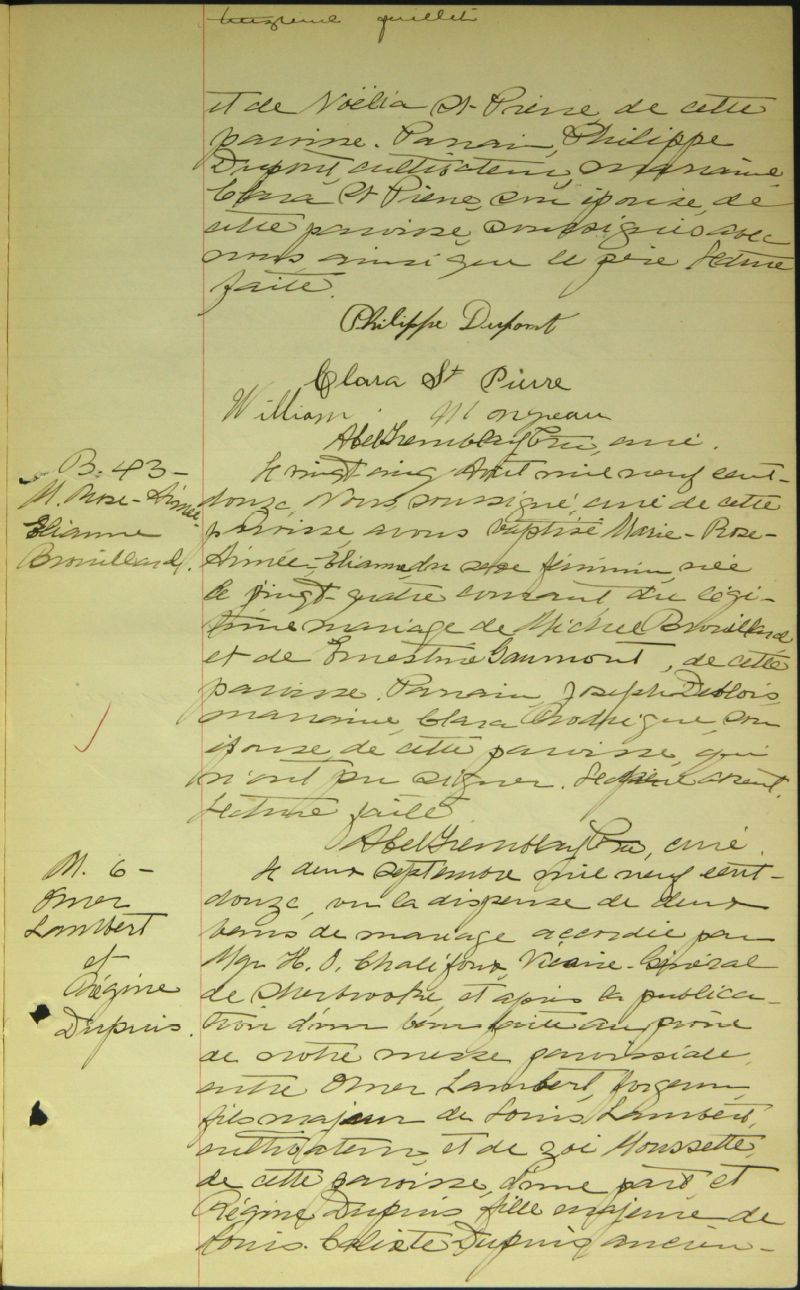 juillet
et de Noëlia St-Pierre, de cette
paroisse. Parrain, Philippe
Dupont, cultivateur, marraine,
Clara St Pierre, son épouse, de
cette paroisse, soussignés avec
nous, ainsi que le père. Lecture
faite.
Philippe Dupont
Clara St Pierre
William Mongeau
Abel Tremblay Ptre, curé.
B. 43 -
M. Rose-Aimée-
Elianne
Brouillard.
Le vingt cinq Août mil neuf cent-
douze, Nous, soussigné, curé de cette
paroisse avons baptisé Marie-Rose-
Aimée-Elianne, du sexe féminin, née
le vingt-quatre courant du légi-
time mariage de Michel Brouillard
et de Ernestine Gaumont, de cette
paroisse. Parrain, Joseph Deblois,
marraine, Clara Rodrigue, son
épouse, de cette paroisse, qui
n'ont pu signer. Le père absent.
Lecture faite.
Abel Tremblay Ptre, curé.
M. 6 -
Omer
Lambert
et
Régina
Dupuis.
Le deux septembre mil neuf cent-
douze, vu la dispense de deux
bans de mariage accordée par
Mgr H. O. Chalifoux, Vicaire-Général
de Sherbrooke, et après la publica-
tion d'un ban faite au prône
de notre messe paroissiale,
entre Omer Lambert, forgeron,
fils majeur de Louis Lambert,
cultivateur, et de Zoé Moussette,
de cette paroisse, d'une part et
Régina Dupuis, fille majeure de
Louis-Calixte Dupuis, ancien-